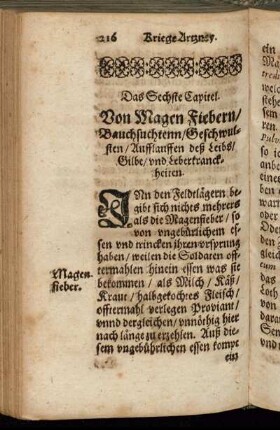 216 Kriegs Artzney.
Das Sechste Capitel.
Von Magen Fiebern/
Bauchsuchtenn/Geschwul-
sten/Aufflauffen deß Leibs/
Gilbe/vnd Leberkranck-
heiten.
INn den Feldtlägern be-
gibt sich nichts mehrers
als die Magenfieber/so
von vngebürlichem es-
sen vnd trincken jhren vrsprung
haben/weilen die Soldaten off-
termahlen hinein essen was sie
bekommen/als Milch/Käß/
Kraut/halbgekochtes Fleisch/
offtermahl verlegen Proviant/
vnnd dergleichen/vnnöthig hier
nach länge zu erzehlen. Auß die-
sem vngebührlichen essen kompt
ein
Magen-
fieber.